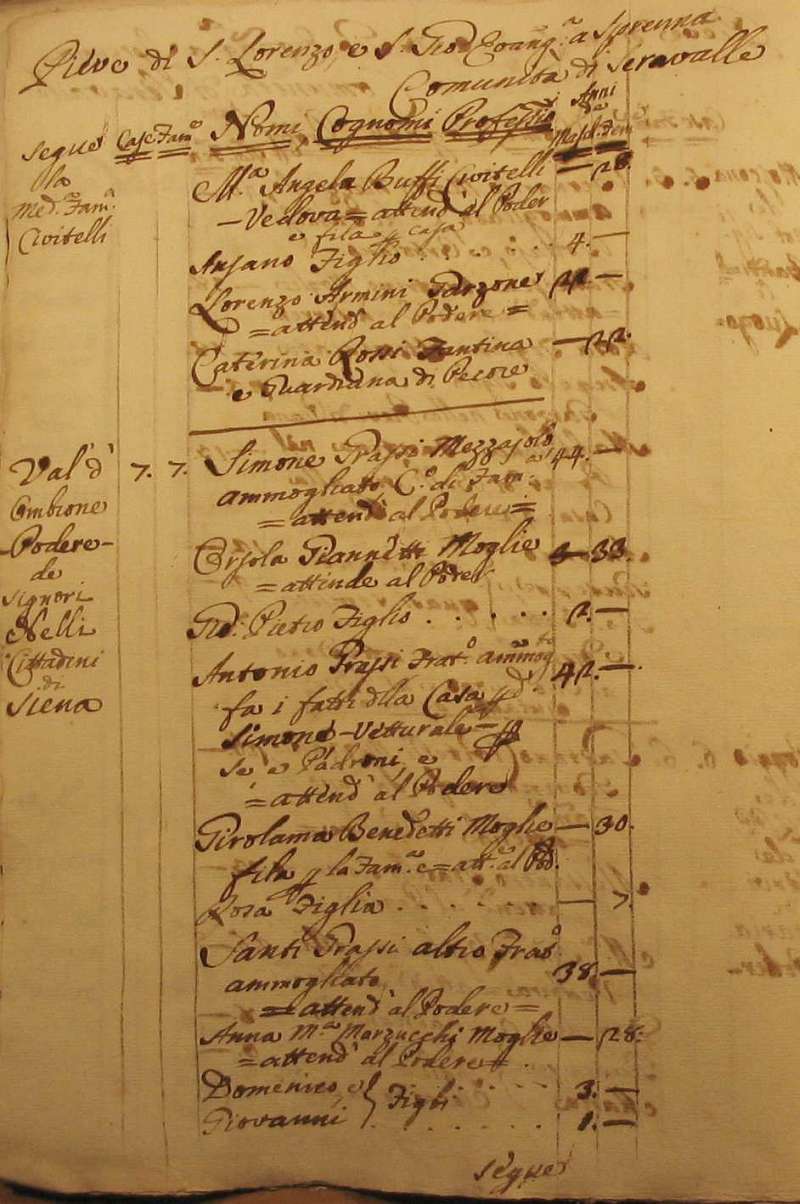 Pieve di S. Lorenzo e S. Gio: Evang.a a Sprenna
Comunità di Seravalle
segue Case Fam.e Nomi Cognomi Professio: Anni
e
Masch. Fem
la
Med.a Fam.a
Civitelli
M.a Angela Buffi Civitelli — 28.
- Vedova = attend. al Poder
e fila p casa
Ansano Figlio . . . . 4. —
Lorenzo Armini Garzone —
= attend al Podere =
Caterina Rossi Fantina — 22.
e Guardiana di Pecore
Val d' 7. 7. Simone Grassi Mezzajolo 44. —
Ombrone
ammogliato C.o di Fam.a
= attend al Podere =
- Podere -
de
Signori
Nelli
Cittadini
di
Siena
Orsola Giannetti Moglie — 33.
= attende al Poder
Gio: Pietro Figlio . . . . . 2. —
Antonio Grassi Frat.o ammog.to 42. —
fa i fatti dlla Casa p d.
Simone - Vetturale - p
se e Padroni, e
= attend al Podere
Girolama Benedetti Moglie — 30.
fila p la Fam.a e = att.e al Pod.
Rosa Figlia . . . . . — 7.
Santi Grassi altro Frat.o
ammogliato 38. —
= attend al Podere =
Anna M.a Marzucchi Moglie — 28.
= attend al Podere =
Domenico, e } Figli . . . . 3. —
Giovanni . . . . . 1. —
segue